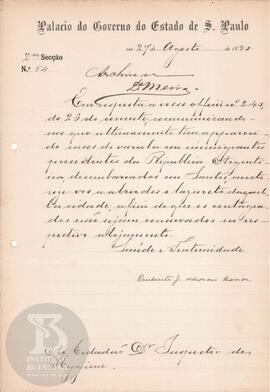 Palacio do Governo do Estado de S. Paulo
2ª Secção
em 27 de Agosto de 1890
N.º 54
Archive-se
Dr Meira
Em resposta a vosso officio nº 240,
de 23 do corrente, communicando-me
que ultimamente tem apparecido
casos de variola em immigrantes
procedentes da Republica Argentina,
desembarcados em Santos,
vos a abrirdes o lazareto daquella
cidade, afim de que os contagiados
não sejam conservados no respectivo
alojamento.
Saúde e Fraternidade
Prudente J. de Moraes Barros
Ao Cidadão Dr Inspector de
Hygiene.
INSTITUTO
BUTANTAN